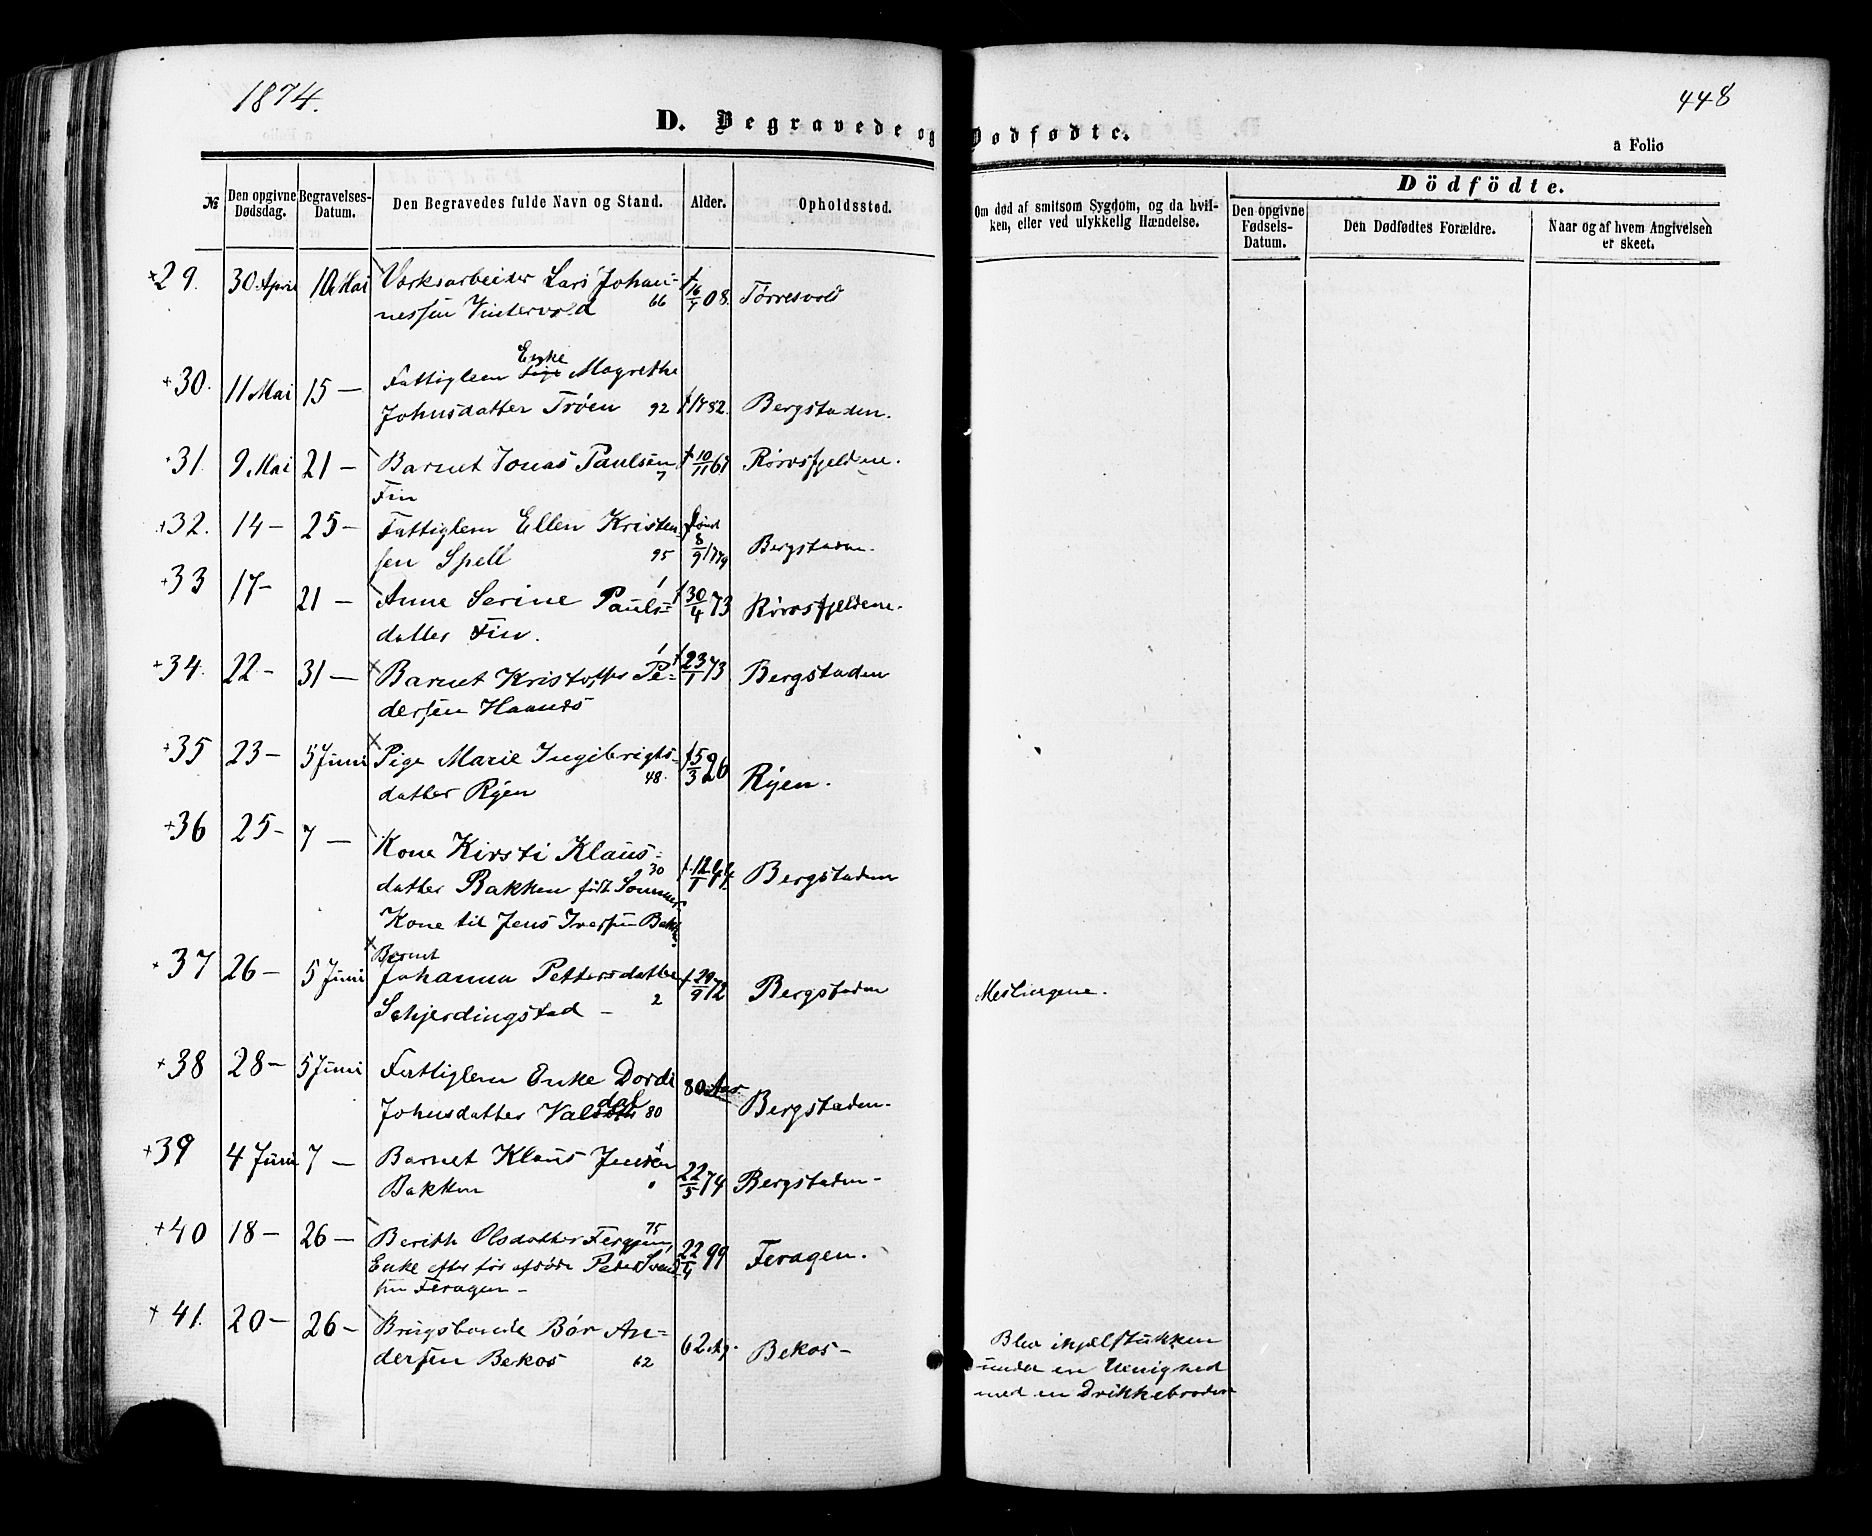 1874.
448
D. Begravede og Dødfødte.
a Folio
№
Den opgivne Dødsdag.
Begravelses-Datum.
Den Begravedes fulde Navn og Stand.
Alder.
Opholdssted.
Om død af smitsom Sygdom, og da hvilken, eller ved ulykkelig Hændelse.
Dödfödte.
Den opgivne Fødsels-Datum.
Den Dødfødtes Forældre.
Naar og af hvem Angivelsen er skeet.
+29. 30 April 10 Mai Værksarbeider Lars Johan-
nessen Vintervold 66 16/4 08. Tørresvold
+30. 11 Mai 15 — Fattiglem Enke Magrethe
Johnsdatter Trøen 92 1782. Bergstaden.
+31. 9 Mai 21 — Barnet Jonas Paulsen 7 10/11 67 Rørosfjeldene.
Fin
+32. 14 — 25 — Fattiglem Ellen Kristen-
sen Spell 95 8/9 1779 Bergstaden.
+33 17 — 21 — Anne Serine Pauls- 1 30/4 73 Rørosfjeldene.
datter Fin.
+34. 22 — 31 — Barnet Kristoffer Pe- 1 23/1 73 Bergstaden
dersen Haanes
+35 23 — 5 Juni Pige Marie Ingibrigts-
datter Ryen 48. 5/3 26 Ryen.
+36 25 — 7 — Kone Kirsti Klaus-
datter Bakken født Sommer 30 12/1 44 Bergstaden
Kone til Jens Iversen Bakk.
+37 26 — 5 Juni Barnet
Johanna Pettersdatter 29/9 72 Bergstaden Meslingene.
Schjerdingstad — 2
+38 28 — 5 Juni Fattiglem Enke Dordi 80 Aar
Johnsdatter 80 Bergstaden.
+39 4 Juni 7 — Barnet Klaus Jensen
Bakken 22/5 74 Bergstaden.
+40 18 — 26 — Berith Olsdatter Feragen, 75
Enke efter før afdøde Peder Svend- 22/4 99 Feragen.
sen Feragen —
+41. 20 — 26 — Brugsbonde Bør An-
dersen Bekos 62 62 Bekos —
Blev ihjelstukken
under en Uenighed
med en Drikkebroder